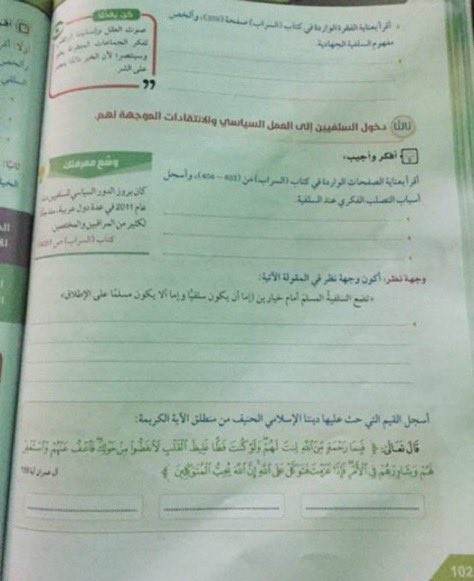 كن يقظًا
صوتك العقل وإنسانيتك
لفكر الجماعات المتطرفة
وسينتصر؛ لأن الخير دائمًا
على الشر.
أقرأ بعناية الفقرة الواردة في كتاب (السراب) صفحة، وألخص
مفهوم السلفية الجهادية.
ثالثًا دخول السلفيين إلى العمل السياسي والانتقادات الموجهة لهم.
أفكر وأجيب:
أقرأ بعناية الصفحات الواردة في كتاب (السراب) من (403 – 404)، وأسجل
أسباب التصلب الفكري عند السلفية.
وسّع معرفتك
كان بروز الدور السياسي للسلفيين
عام 2011 في عدة دول عربية،
لكثير من المراقبين والمختصين.
كتاب (السراب) ص
وجهة نظر: أكون وجهة نظر في المقولة الآتية:
«تضع السلفية المسلم أمام خيارين (إما أن يكون سلفيًا وإما ألا يكون مسلمًا على الإطلاق)»
أسجل القيم التي حث عليها ديننا الإسلامي الحنيف من منطلق الآية الكريمة:
قال تعالى: ﴿ فَبِمَا رَحْمَةٍ مِّنَ اللَّهِ لِنتَ لَهُمْ وَلَوْ كُنتَ فَظًّا غَلِيظَ الْقَلْبِ لَانفَضُّوا مِنْ حَوْلِكَ فَاعْفُ عَنْهُمْ وَاسْتَغْفِرْ
لَهُمْ وَشَاوِرْهُمْ فِي الْأَمْرِ فَإِذَا عَزَمْتَ فَتَوَكَّلْ عَلَى اللَّهِ إِنَّ اللَّهَ يُحِبُّ الْمُتَوَكِّلِينَ ﴾
آل عمران آية 159
102